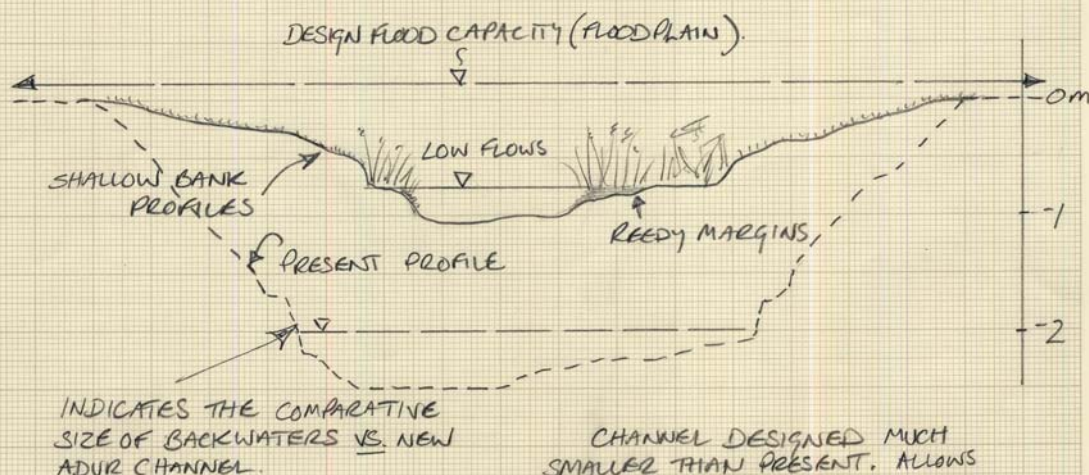 DESIGN FLOOD CAPACITY (FLOODPLAIN).
0m
LOW FLOWS
SHALLOW BANK
PROFILES
-1
REEDY MARGINS
PRESENT PROFILE
-2
INDICATES THE COMPARATIVE
SIZE OF BACKWATERS VS. NEW
ADUR CHANNEL.
CHANNEL DESIGNED MUCH
SMALLER THAN PRESENT. ALLOWS